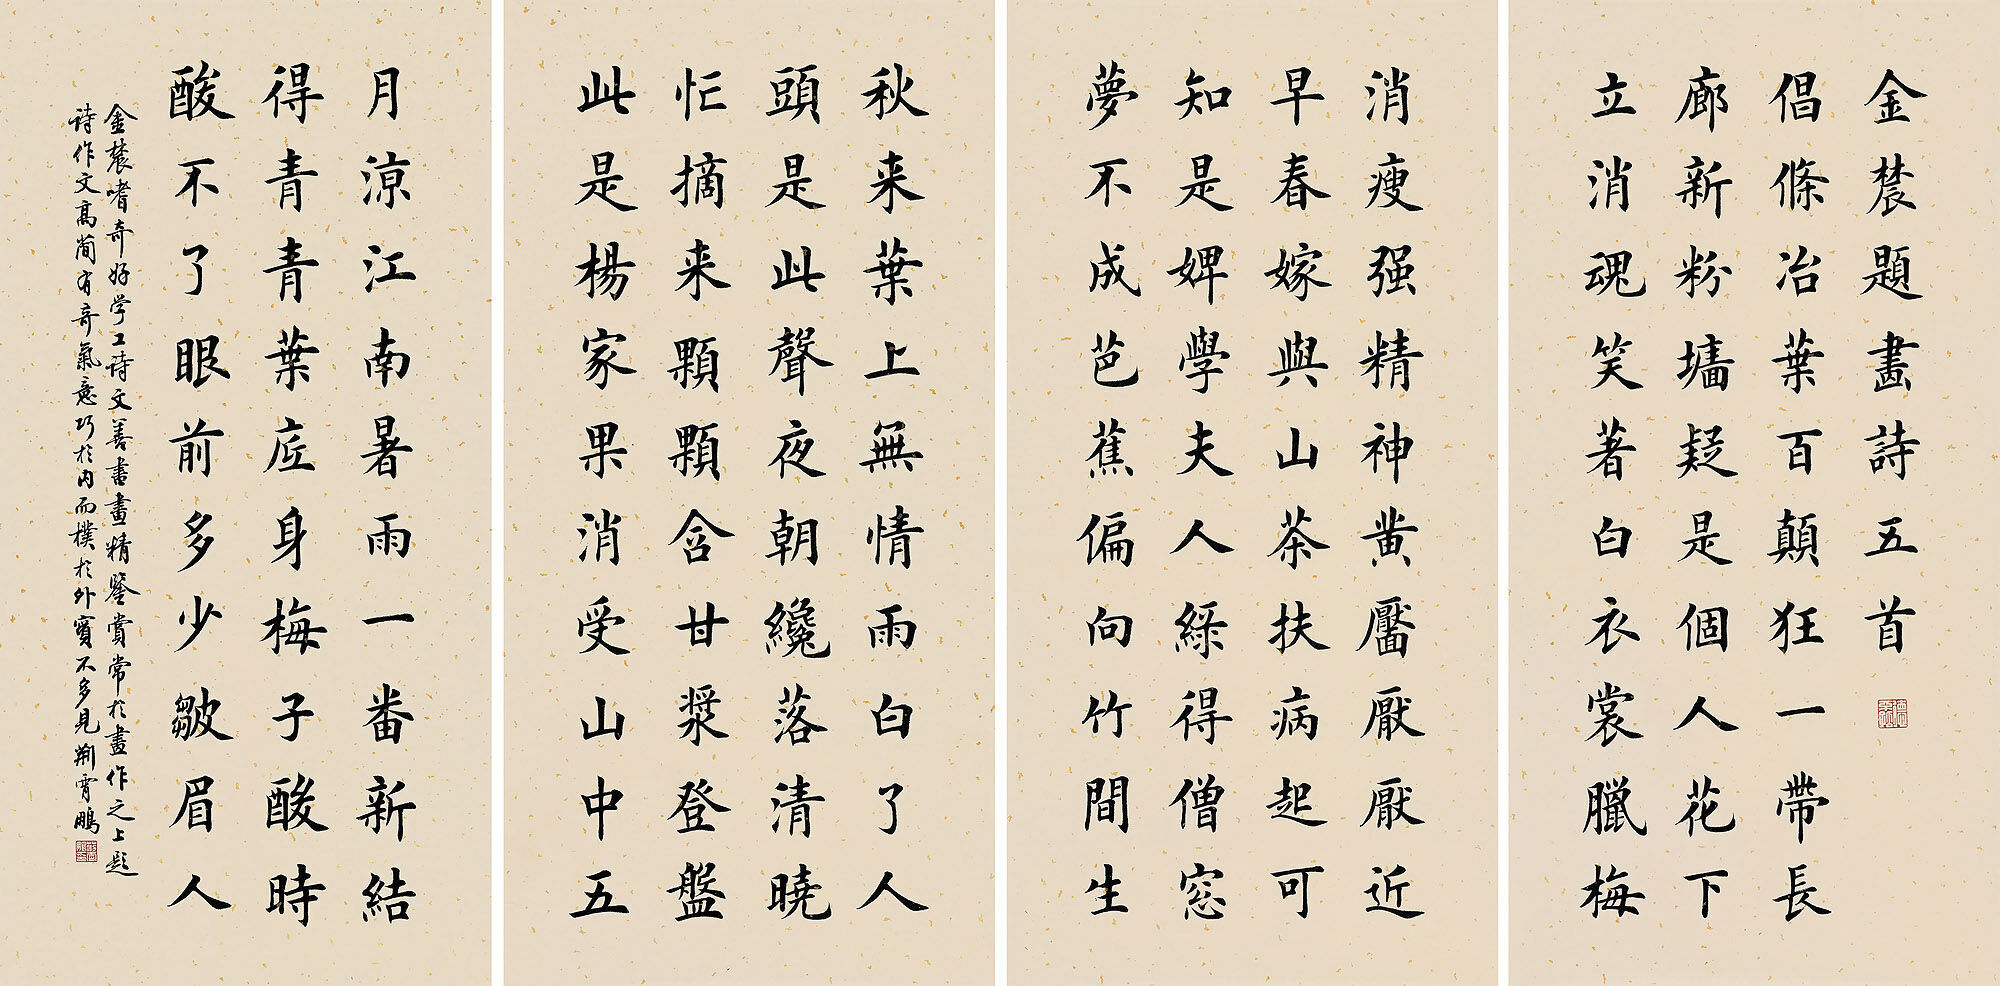 金農題畫詩五首
倡條冶葉百顛狂一帶長
廊新粉墻疑是個人花下
立消魂笑著白衣裳臘梅
消瘦强精神黄靨厭厭近
早春嫁與山茶扶病起可
知是婢學夫人綠得僧窓
夢不成芭蕉偏向竹間生
秋来葉上無情雨白了人
頭是此聲夜朝纔落清曉
忙摘来顆顆含甘漿登盤
此是楊家果消受山中五
月涼江南暑雨一番新結
得青青葉底身梅子酸時
酸不了眼前多少皺眉人
金農嗜奇好学工诗文善書畫精鑒賞常於畫作之上題
诗作文高简有奇氣意巧於内而樸於外實不多見荆霄鹏